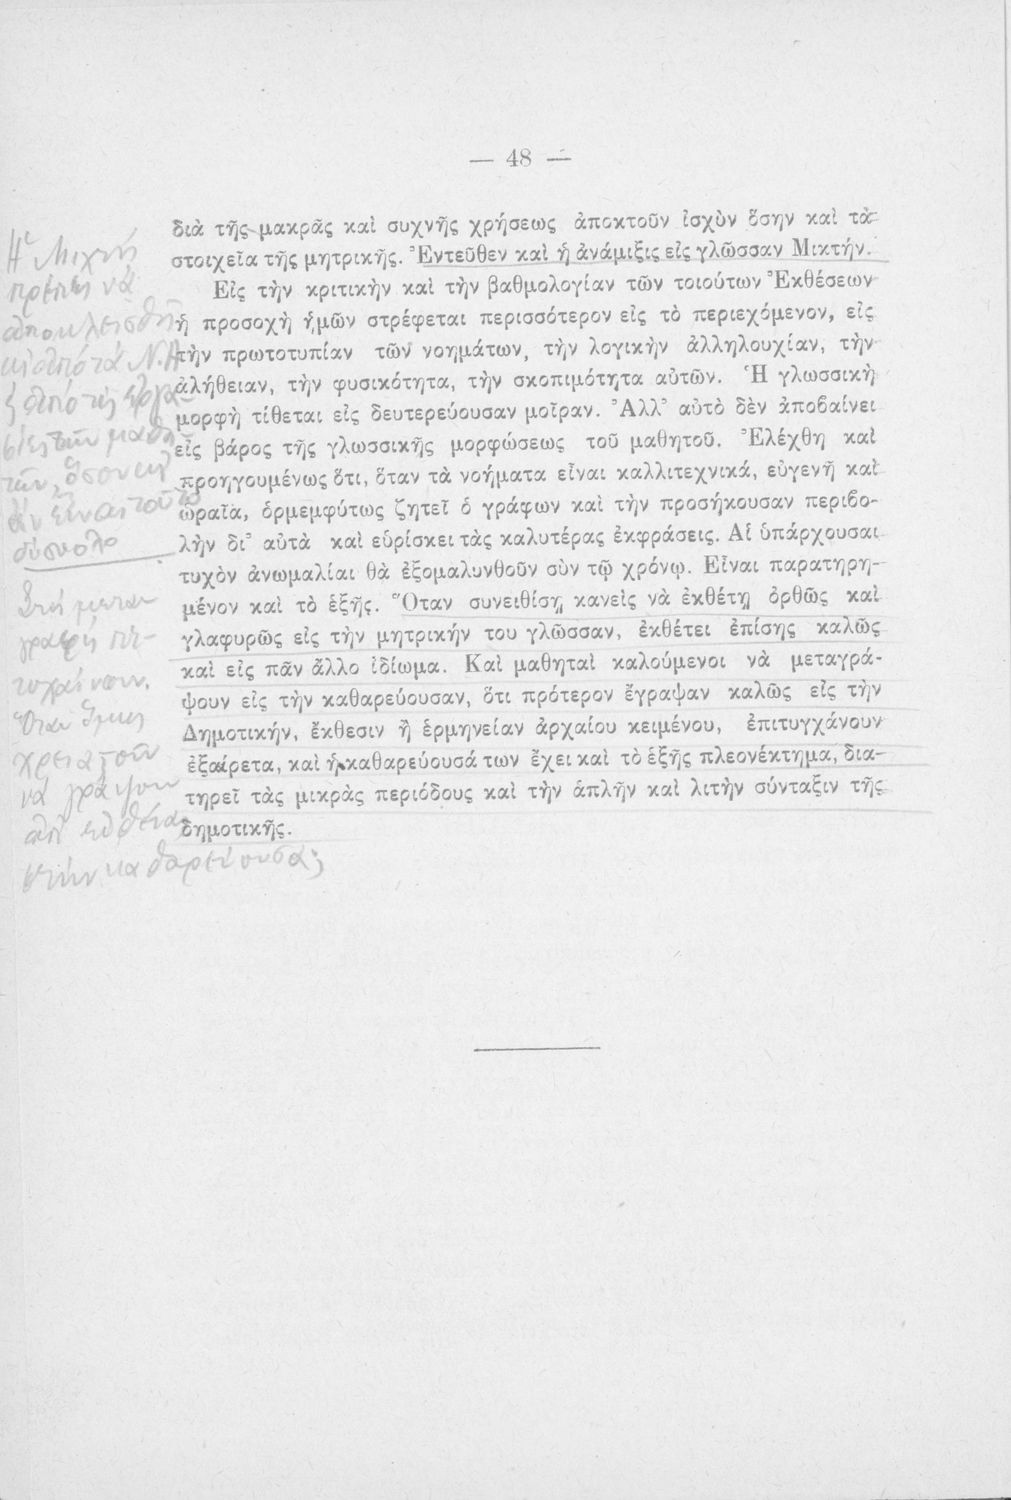 — 48 —
διὰ τῆς μακρᾶς καὶ συχνῆς χρήσεως ἀποκτοῦν ἰσχὺν ὅσην καὶ τὰ
στοιχεῖα τῆς μητρικῆς. Ἐντεῦθεν καὶ ἡ ἀνάμιξις εἰς γλῶσσαν Μικτήν.
Εἰς τὴν κριτικὴν καὶ τὴν βαθμολογίαν τῶν τοιούτων Ἐκθέσεων
ἡ προσοχὴ ἡμῶν στρέφεται περισσότερον εἰς τὸ περιεχόμενον, εἰς
τὴν πρωτοτυπίαν τῶν νοημάτων, τὴν λογικὴν ἀλληλουχίαν, τὴν
ἀλήθειαν, τὴν φυσικότητα, τὴν σκοπιμότητα αὐτῶν. Ἡ γλωσσικὴ
μορφὴ τίθεται εἰς δευτερεύουσαν μοῖραν. Ἀλλ' αὐτὸ δὲν ἀποβαίνει
εἰς βάρος τῆς γλωσσικῆς μορφώσεως τοῦ μαθητοῦ. Ἐλέχθη καὶ
προηγουμένως ὅτι, ὅταν τὰ νοήματα εἶναι καλλιτεχνικά, εὐγενῆ καὶ
ὡραῖα, ὁρμεμφύτως ζητεῖ ὁ γράφων καὶ τὴν προσήκουσαν περιβο-
λὴν δι' αὐτὰ καὶ εὑρίσκει τὰς καλυτέρας ἐκφράσεις. Αἱ ὑπάρχουσαι
τυχὸν ἀνωμαλίαι θὰ ἐξομαλυνθοῦν σὺν τῷ χρόνῳ. Εἶναι παρατηρη-
μένον καὶ τὸ ἑξῆς. Ὅταν συνειθίσῃ κανεὶς νὰ ἐκθέτῃ ὀρθῶς καὶ
γλαφυρῶς εἰς τὴν μητρικήν του γλῶσσαν, ἐκθέτει ἐπίσης καλῶς
καὶ εἰς πᾶν ἄλλο ἰδίωμα. Καὶ μαθηταὶ καλούμενοι νὰ μεταγρά-
ψουν εἰς τὴν καθαρεύουσαν, ὅτι πρότερον ἔγραψαν καλῶς εἰς τὴν
Δημοτικήν, ἔκθεσιν ἢ ἑρμηνείαν ἀρχαίου κειμένου, ἐπιτυγχάνουν
ἐξαίρετα, καὶ ἡ καθαρεύουσά των ἔχει καὶ τὸ ἑξῆς πλεονέκτημα, δια-
τηρεῖ τὰς μικρὰς περιόδους καὶ τὴν ἁπλῆν καὶ λιτὴν σύνταξιν τῆς
δημοτικῆς.
Ἡ Μιχτή
πρέπει νὰ
ἀποκλεισθῆ
τῶν, ὅσον καὶ
ἂν εἶναι τοῦτο
δύσκολο
Στὴ μετα-
γραφὴ πι-
τυχαίνουν.
Ὅταν ὅμως
χρειαστοῦν
νὰ γράψουν
ἀπ' εὐθείας
στὴν καθαρεύουσα;